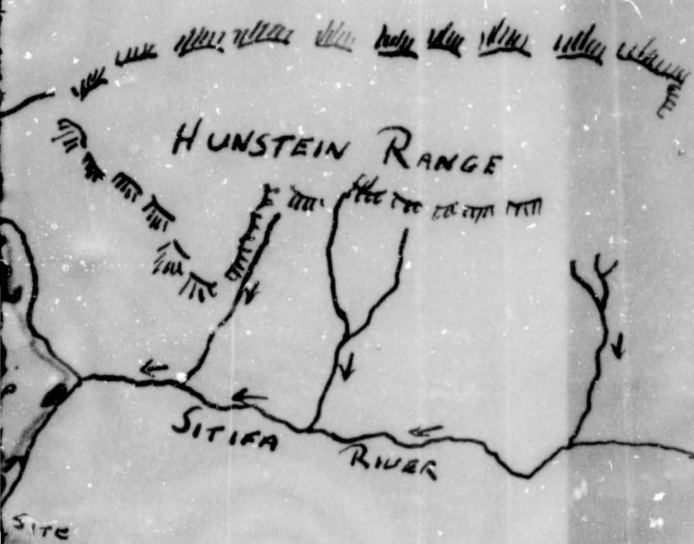 HUNSTEIN RANGE
SITIFA RIVER
SITE